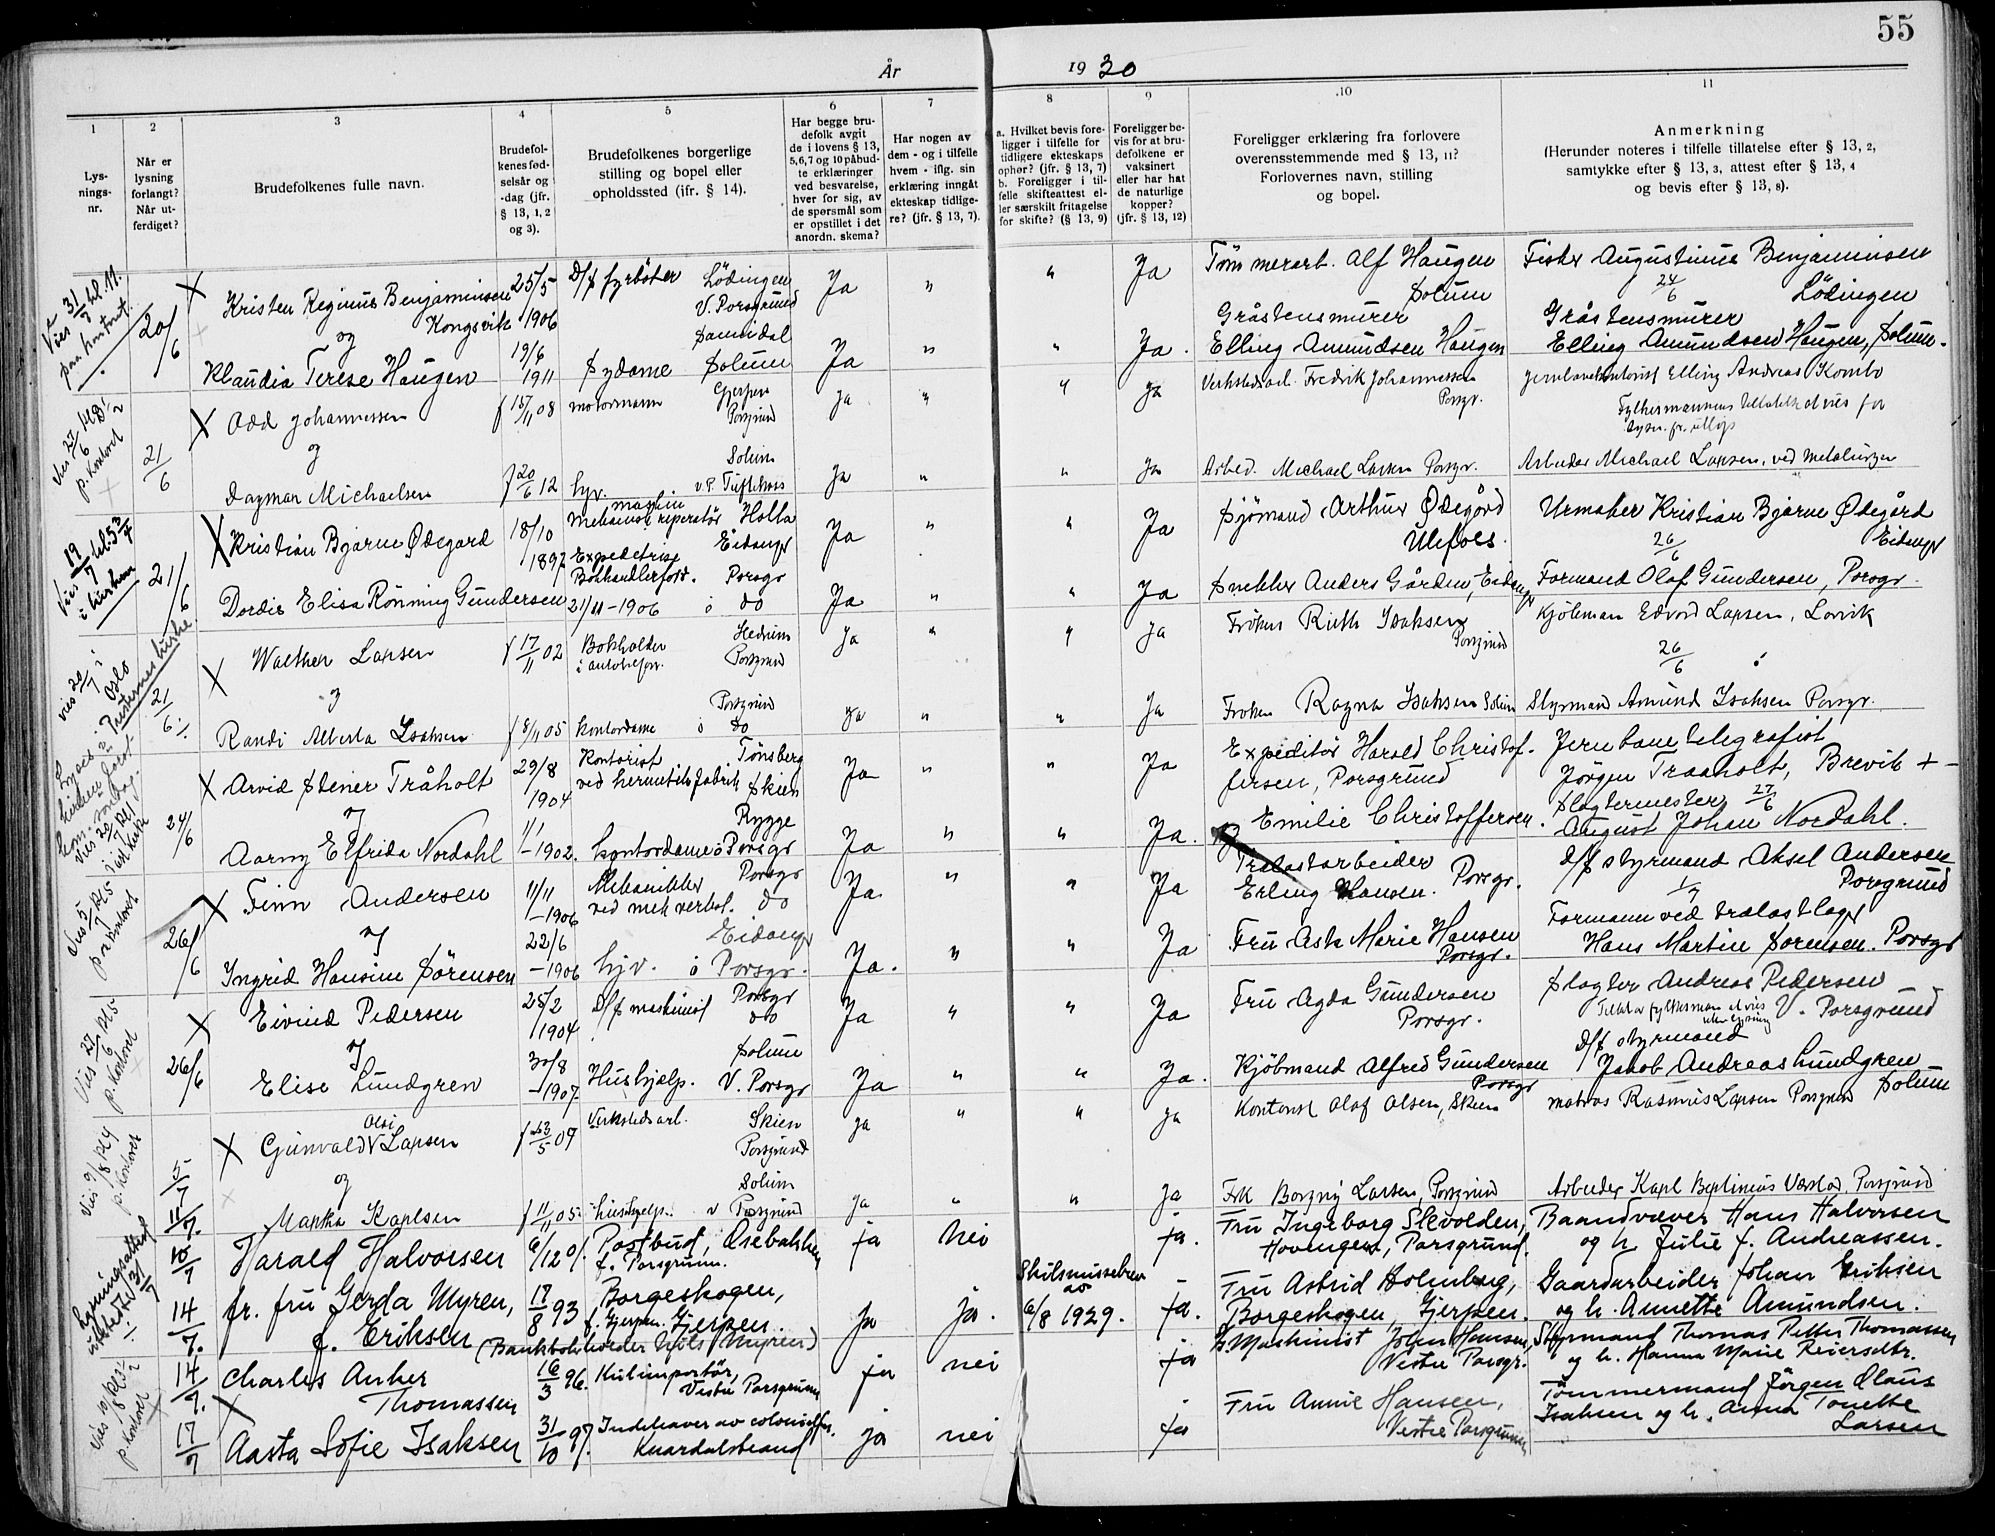 55
År 1930
1 2 3 4 5 6 7 8 9 10 11
Lys-
nings-
nr.
Når er
lysning
forlangt?
Når ut-
ferdiget?
Brudefolkenes fulle navn.
Brudefol-
kenes fød-
selsår og
-dag (jfr.
§ 13, 1, 2
og 3).
Brudefolkenes borgerlige
stilling og bopel eller
opholdssted (ifr. § 14).
Har begge bru-
defolk avgit
de i lovens § 13,
5,6,7 og 10 påbud-
te erklæringer
ved besvarelse,
hver for sig, av
de spørsmål som
er opstillet i det
anordn. skema?
Har nogen av
dem - og i tilfelle
hvem - iflg. sin
erklæring inngått
ekteskap tidlige-
re? (jfr. § 13, 7).
a. Hvilket bevis fore-
ligger i tilfelle for
tidligere ekteskaps
ophør? (jfr. § 13, 7)
b. Foreligger i til-
felle skifteattest el-
ler særskilt fritagelse
for skifte? (§ 13, 9)
Foreligger be-
vis for at bru-
defolkene er
vaksinert
eller har hat
de naturlige
kopper?
(jfr. § 13, 12)
Foreligger erklæring fra forlovere
overensstemmende med § 13, 11?
Forlovernes navn, stilling
og bopel.
Anmerkning
(Herunder noteres i tilfelle tillatelse efter § 13, 2,
samtykke efter § 13, 3, attest efter § 13, 4
og bevis efter § 13, 8).
Viet 31/8 kl. 11.
paa kontoret.
20/6
X Kristen Reginus Benjaminsen
Kongsvik
25/5 1906
D/f fyrbøter Lödingen
V. Porsgrund
Ja " " Ja
Tömmerarb. Alf Haugen
Solum
Fisker Augustinus Benjaminsen
24/6 Lödingen
og
Klaudia Terese Haugen
19/6 1911
Sydame Solum
Ja " " Ja.
Gråstensmurer
Elling Amundsen Haugen
Gråstensmurer
Elling Amundsen Haugen, Solum.
Vies 27/6
p. Kontoret
21/6
X Odd Johannessen
f 15/11 08
motormann Gjerpen
Porsgrund
Ja " " Ja
Verkstedsarb. Fredrik Johannessen
Porsgr.
Elling Andreas Kombo
og
Dagmar Michaelsen
f 20/6 12
hjv. Solum
v.P. Tuftekås
Ja " " Ja
Arbed. Michael Larsen Porsgr.
Arbeider Michael Larsen, ved Metalurgen
Vies 19/7
i kirken
21/6
X Kristian Bjarne Ødegård
18/10 1897
maskin
Mekanisk reperatör Holla
Eidanger
Ja " " Ja
Sjömand Arthur Ødegård
Ulefoss.
Urmaker Kristian Bjarne Ødegård
26/6 Eidanger
Dordis Elisa Rönning Gundersen
21/11-1906
Expeditrise
Bokhandlerforr. Porsgr
do
Ja " " Ja
Snekker Anders Gården, Eidanger
Formand Olaf Gundersen, Porsgr.
vies 20/7 i
Oslo
21/6
X Walther Larsen
f 17/11 02
Bokholder Hedrum
Porsgrund
Ja " " Ja
Fröken Ruth Isaksen
Porsgrund
Kjöbman Edvard Larsen, Larvik
26/6
og
Randi Alberta Isaksen
f 8/11 05
kontordame Porsgrund
do
Ja " " Ja
Fröken Ragna Isaksen Solum
Styrmand Amund Isaksen Porsgr.
24/6
X Arvid Stener Tråholt
29/8 1904
Kontorist Tønsberg
ved hermetikfabrik Skien
Ja " " Ja
Expeditör Harald Christof-
fersen, Porsgrund
Jernbanetelegrafist
Jörgen Traaholt, Brevik + -
og
Aarny Elfrida Nordahl
1/1 -1902.
kontordame Rygge
Porsgr
Ja " " Ja.
Emilie Christoffersen.
Slagtermester 27/6
August Johan Nordahl.
Vies 5/7 kl 5
på kontoret
26/6
X Finn Andersen
11/11 -1906
Mekaniker Porsgr
ved mek verkst. do
Ja " " Ja
Trælastarbeider
Erling Hansen. Porsgr.
D/f styrmand Aksel Andersen
1/7 Porsgrund
og
Ingrid Hansine Sörensen
22/6 -1906
hjv. Eidanger
Porsgr.
Ja. " " Ja
Fru Ask Marie Hansen
Porsgr.
Formann ved trælastlager
Hans Martin Sorensen. Porsgr
Vies 27/6 kl 5
p. Kontoret
26/6
X Eivind Pedersen
25/2 1904.
D/f maskinist Porsgr
do
Ja " " Ja
Fru Agda Gundersen
Porsgr.
Slagter Andreas Pedersen
V. Porsgrund
og
Elise Lundgren
30/8 -1907
Hushjælp. Solum
V. Porsgr
Ja " " Ja.
Kjöbmand Alfred Gundersen
Porsgr
D/f styrmand
Jakob Andreas Lundgren
Solum
Vies 9/8 kl 4
p. kontoret
5/7
X Gunvald Olsi Larsen
f 23/5 07
Verkstedsarb. Skien
Porsgrund
Ja " " Ja
Kontorist Olaf Olsen, Skien
matros Rasmus Larsen Porsgrund
og
Martha Karlsen
f 11/11 05.
hushjelp. Solum
v Porsgrund
Ja " " Ja
Frk Borgny Larsen, Porsgrund
Arbeider Karl Bertinius Værstad, Porsgrund
lysningsattest
utstedt 31/7
11/7.
10/7
Harald Halvorsen
6/12 01.
Postbud, Osebakken
f. Porsgrunn.
ja nei ja.
Fru Ingeborg Slevolden,
Hovengen, Porsgrund.
Baandvæver Hans Halvorsen
og h. Julie f. Andreassen.
14/7.
fr. fru Gerda Myren,
f. Eriksen (Bankbokholder Nils Myren)
17/8 93
Borgeskogen,
f. Gjerpen. Gjerpen.
Ja ja.
Skilsmissebrev
av
6/8 1929.
ja.
Fru Astrid Holmberg,
Borgeskogen, Gjerpen.
Gaardarbeider Johan Eriksen
og h. Annette Amundsen.
p. kontoret
14/7.
X Charles Anker
Thomassen
16/3 96.
Kulimportör,
Vestre Porsgrunn
ja nei ja
Maskinist John Hansen,
Vestre Porsgr.
Styrmand Thomas Petter Thomassen
og h. Hanna Marie Reiersdtr.
17/7
Aasta Sofie Isaksen
31/10 97.
Indehaver av colonialfor.
Knardalstrand
ja nei ja
Fru Annie Hansen,
Vestre Porsgrunn
Tömmermand Jörgen Claus
Isaksen og h. Anna Tonette
Larsen